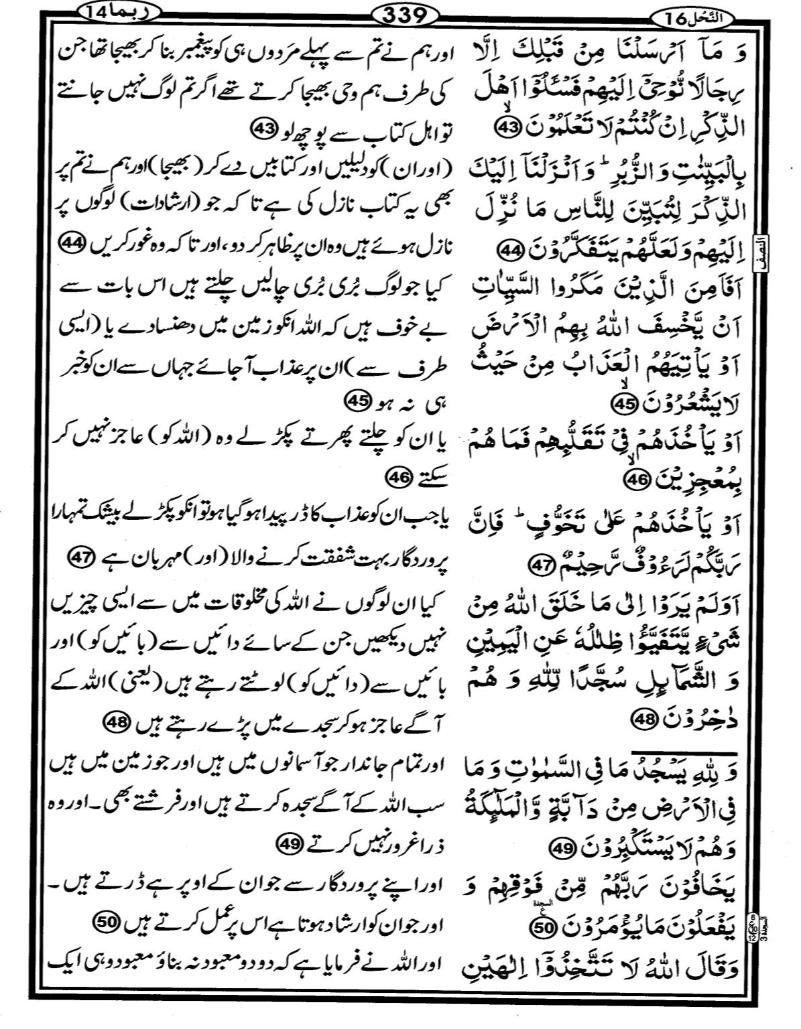 النَّحْل 16
339
ربما 14
وَ مَاۤ اَرۡسَلۡنَا مِنۡ قَبۡلِكَ اِلَّا
رِجَالًا نُّوۡحِىۡۤ اِلَيۡهِمۡ فَسۡـَٔلُوۡۤا اَهۡلَ
الذِّكۡرِ اِنۡ كُنۡتُمۡ لَا تَعۡلَمُوۡنَۙ 43
بِالۡبَيِّنٰتِ وَالزُّبُرِؕ وَاَنۡزَلۡنَاۤ اِلَيۡكَ
الذِّكۡرَ لِتُبَيِّنَ لِلنَّاسِ مَا نُزِّلَ
اِلَيۡهِمۡ وَلَعَلَّهُمۡ يَتَفَكَّرُوۡنَ 44
اَفَاَمِنَ الَّذِيۡنَ مَكَرُوا السَّيِّاٰتِ
اَنۡ يَّخۡسِفَ اللّٰهُ بِهِمُ الۡاَرۡضَ
اَوۡ يَاۡتِيَهُمُ الۡعَذَابُ مِنۡ حَيۡثُ
لَا يَشۡعُرُوۡنَۙ 45
اَوۡ يَاۡخُذَهُمۡ فِىۡ تَقَلُّبِهِمۡ فَمَا هُمۡ
بِمُعۡجِزِيۡنَۙ 46
اَوۡ يَاۡخُذَهُمۡ عَلٰى تَخَوُّفٍؕ فَاِنَّ
رَبَّكُمۡ لَرَءُوۡفٌ رَّحِيۡمٌ 47
اَوَلَمۡ يَرَوۡا اِلٰى مَا خَلَقَ اللّٰهُ مِنۡ
شَىۡءٍ يَّتَفَيَّؤُا ظِلٰلُهٗ عَنِ الۡيَمِيۡنِ
وَ الشَّمَآٮِٕلِ سُجَّدًا لِّلّٰهِ وَ هُمۡ
دٰخِرُوۡنَ 48
وَ لِلّٰهِ يَسۡجُدُ مَا فِى السَّمٰوٰتِ وَ مَا
فِى الۡاَرۡضِ مِنۡ دَآبَّةٍ وَّالۡمَلٰۤٮِٕكَةُ
وَهُمۡ لَا يَسۡتَكۡبِرُوۡنَ 49
يَخَافُوۡنَ رَبَّهُمۡ مِّنۡ فَوۡقِهِمۡ وَ
يَفۡعَلُوۡنَ مَا يُؤۡمَرُوۡنَ 50
وَقَالَ اللّٰهُ لَا تَتَّخِذُوۡۤا اِلٰهَيۡنِ
اور ہم نے تم سے پہلے مَردوں ہی کو پیغمبر بنا کر بھیجا تھا جن
کی طرف ہم وحی بھیجا کرتے تھے اگر تم لوگ نہیں جانتے
تو اہل کتاب سے پوچھ لو 43
(اور ان) کو دلیلیں اور کتابیں دے کر (بھیجا) اور ہم نے تم پر
بھی یہ کتاب نازل کی ہے تا کہ جو (ارشادات) لوگوں پر
نازل ہوئے ہیں وہ ان پر ظاہر کر دو، اور تا کہ وہ غور کریں 44
کیا جو لوگ بُری بُری چالیں چلتے ہیں اس بات سے
بے خوف ہیں کہ اللہ انکو زمین میں دھنسا دے یا (ایسی
طرف سے) ان پر عذاب آ جائے جہاں سے ان کو خبر
ہی نہ ہو 45
یا ان کو چلتے پھرتے پکڑ لے وہ (اللہ کو) عاجز نہیں کر
سکتے 46
یا جب ان کو عذاب کا ڈر پیدا ہو گیا ہو تو انکو پکڑ لے بیشک تمہارا
پروردگار بہت شفقت کرنے والا (اور) مہربان ہے 47
کیا ان لوگوں نے اللہ کی مخلوقات میں سے ایسی چیزیں
نہیں دیکھیں جن کے سائے دائیں سے (بائیں کو) اور
بائیں سے (دائیں کو) لوٹتے رہتے ہیں (یعنی) اللہ کے
آگے عاجز ہو کر سجدے میں پڑے رہتے ہیں 48
اور تمام جاندار جو آسمانوں میں ہیں اور جو زمین میں ہیں
سب اللہ کے آگے سجدہ کرتے ہیں اور فرشتے بھی۔ اور وہ
ذرا غرور نہیں کرتے 49
اور اپنے پروردگار سے جو ان کے اوپر ہے ڈرتے ہیں۔
اور جو ان کو ارشاد ہوتا ہے اس پر عمل کرتے ہیں 50
اور اللہ نے فرمایا ہے کہ دو دو معبود نہ بناؤ معبود وہی ایک
النصف
السجدة 3